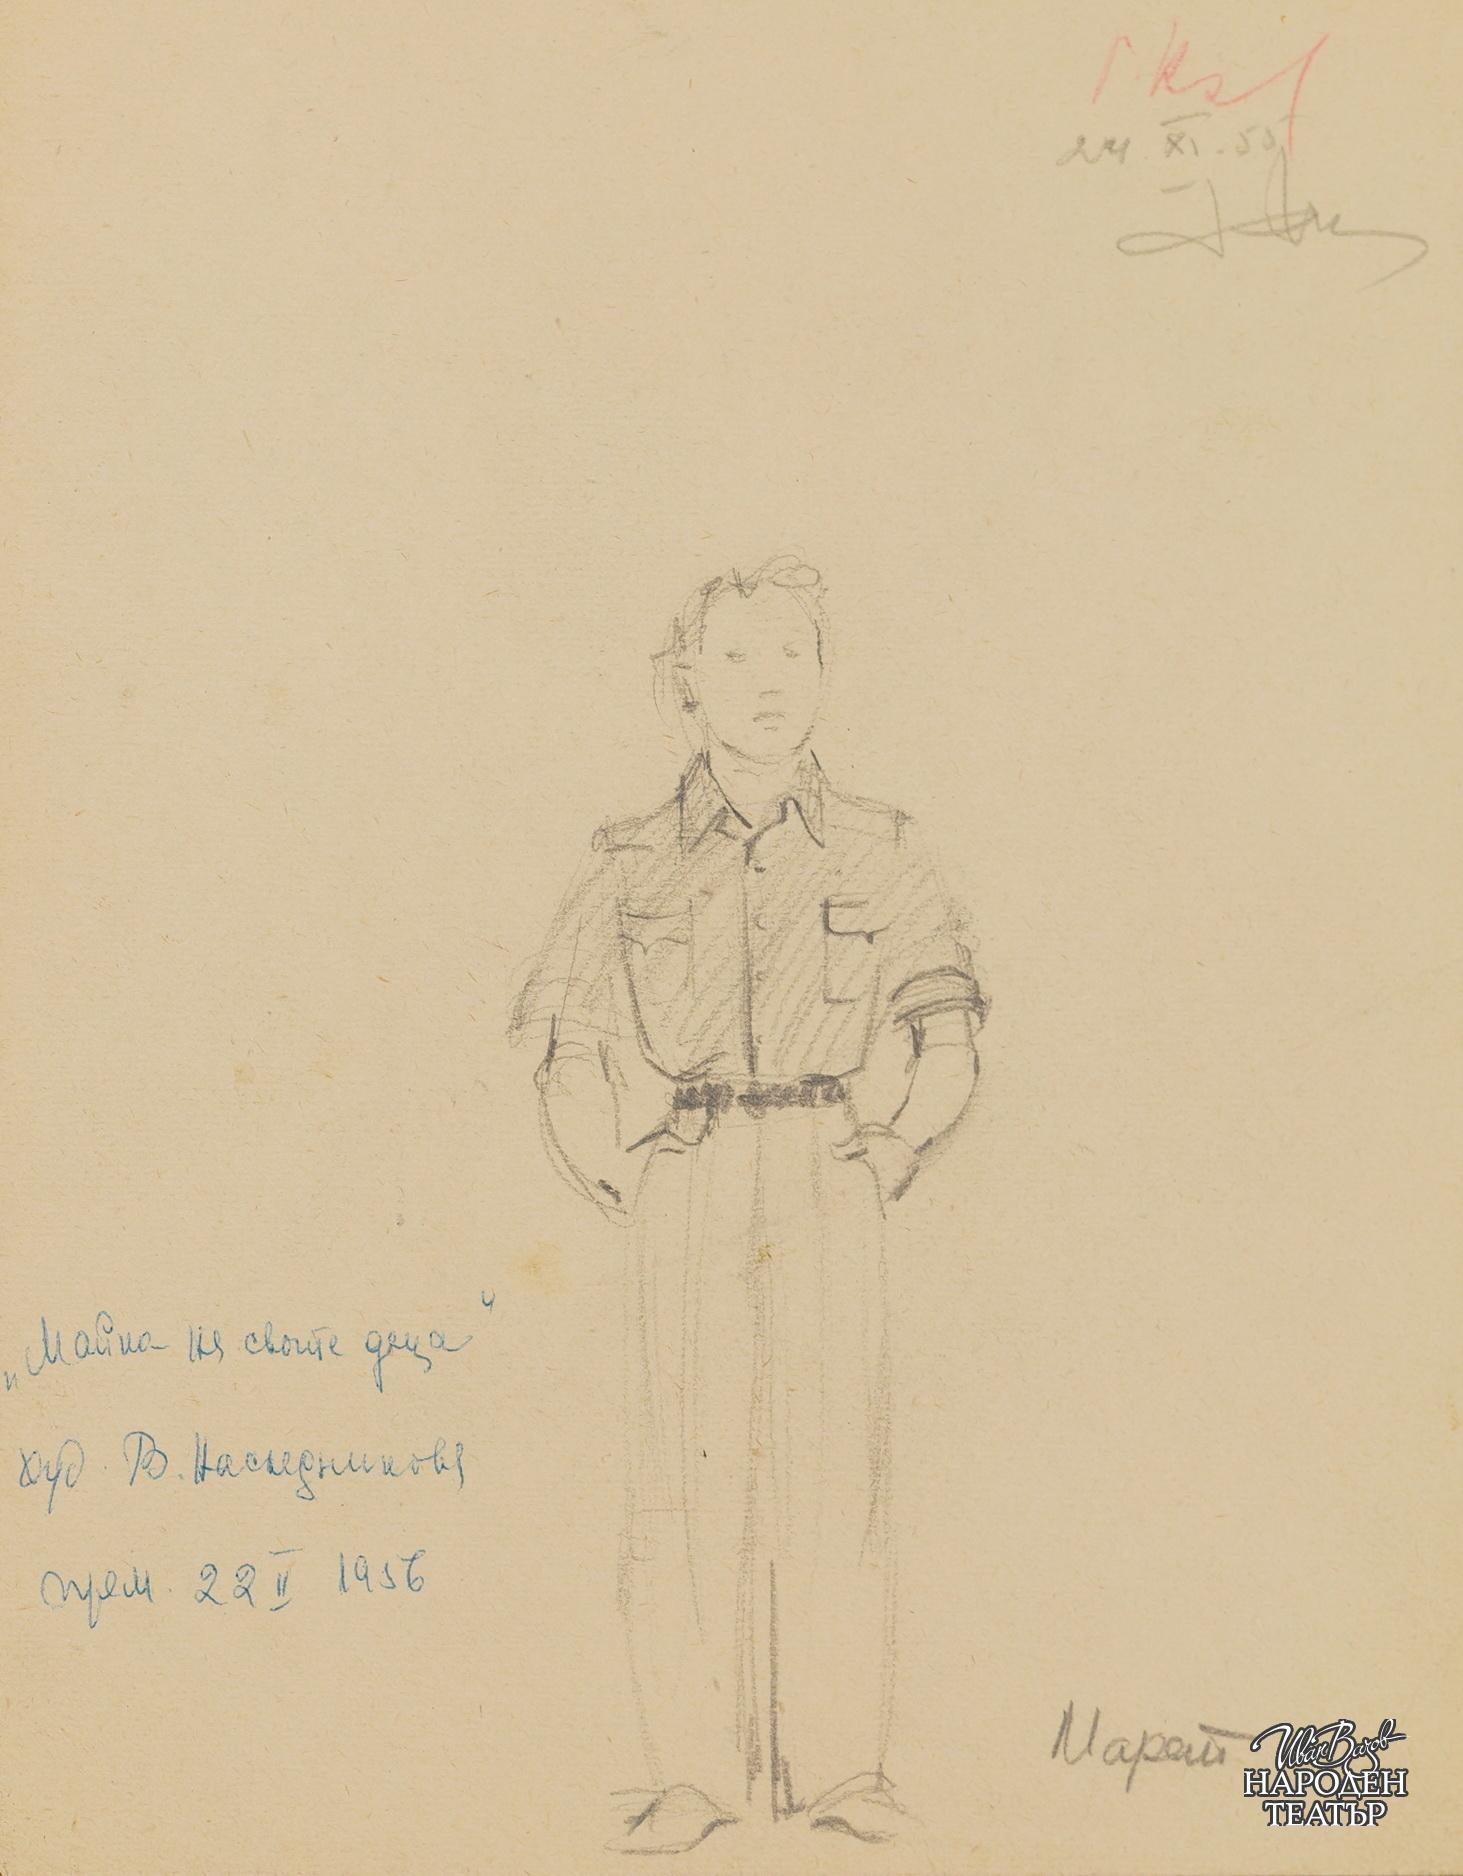 24 XI. 55
„Майка на своите деца“
худ. В. Наследникова
прем. 22 II 1956
Марат
Иван Вазов
НАРОДЕН
ТЕАТЪР